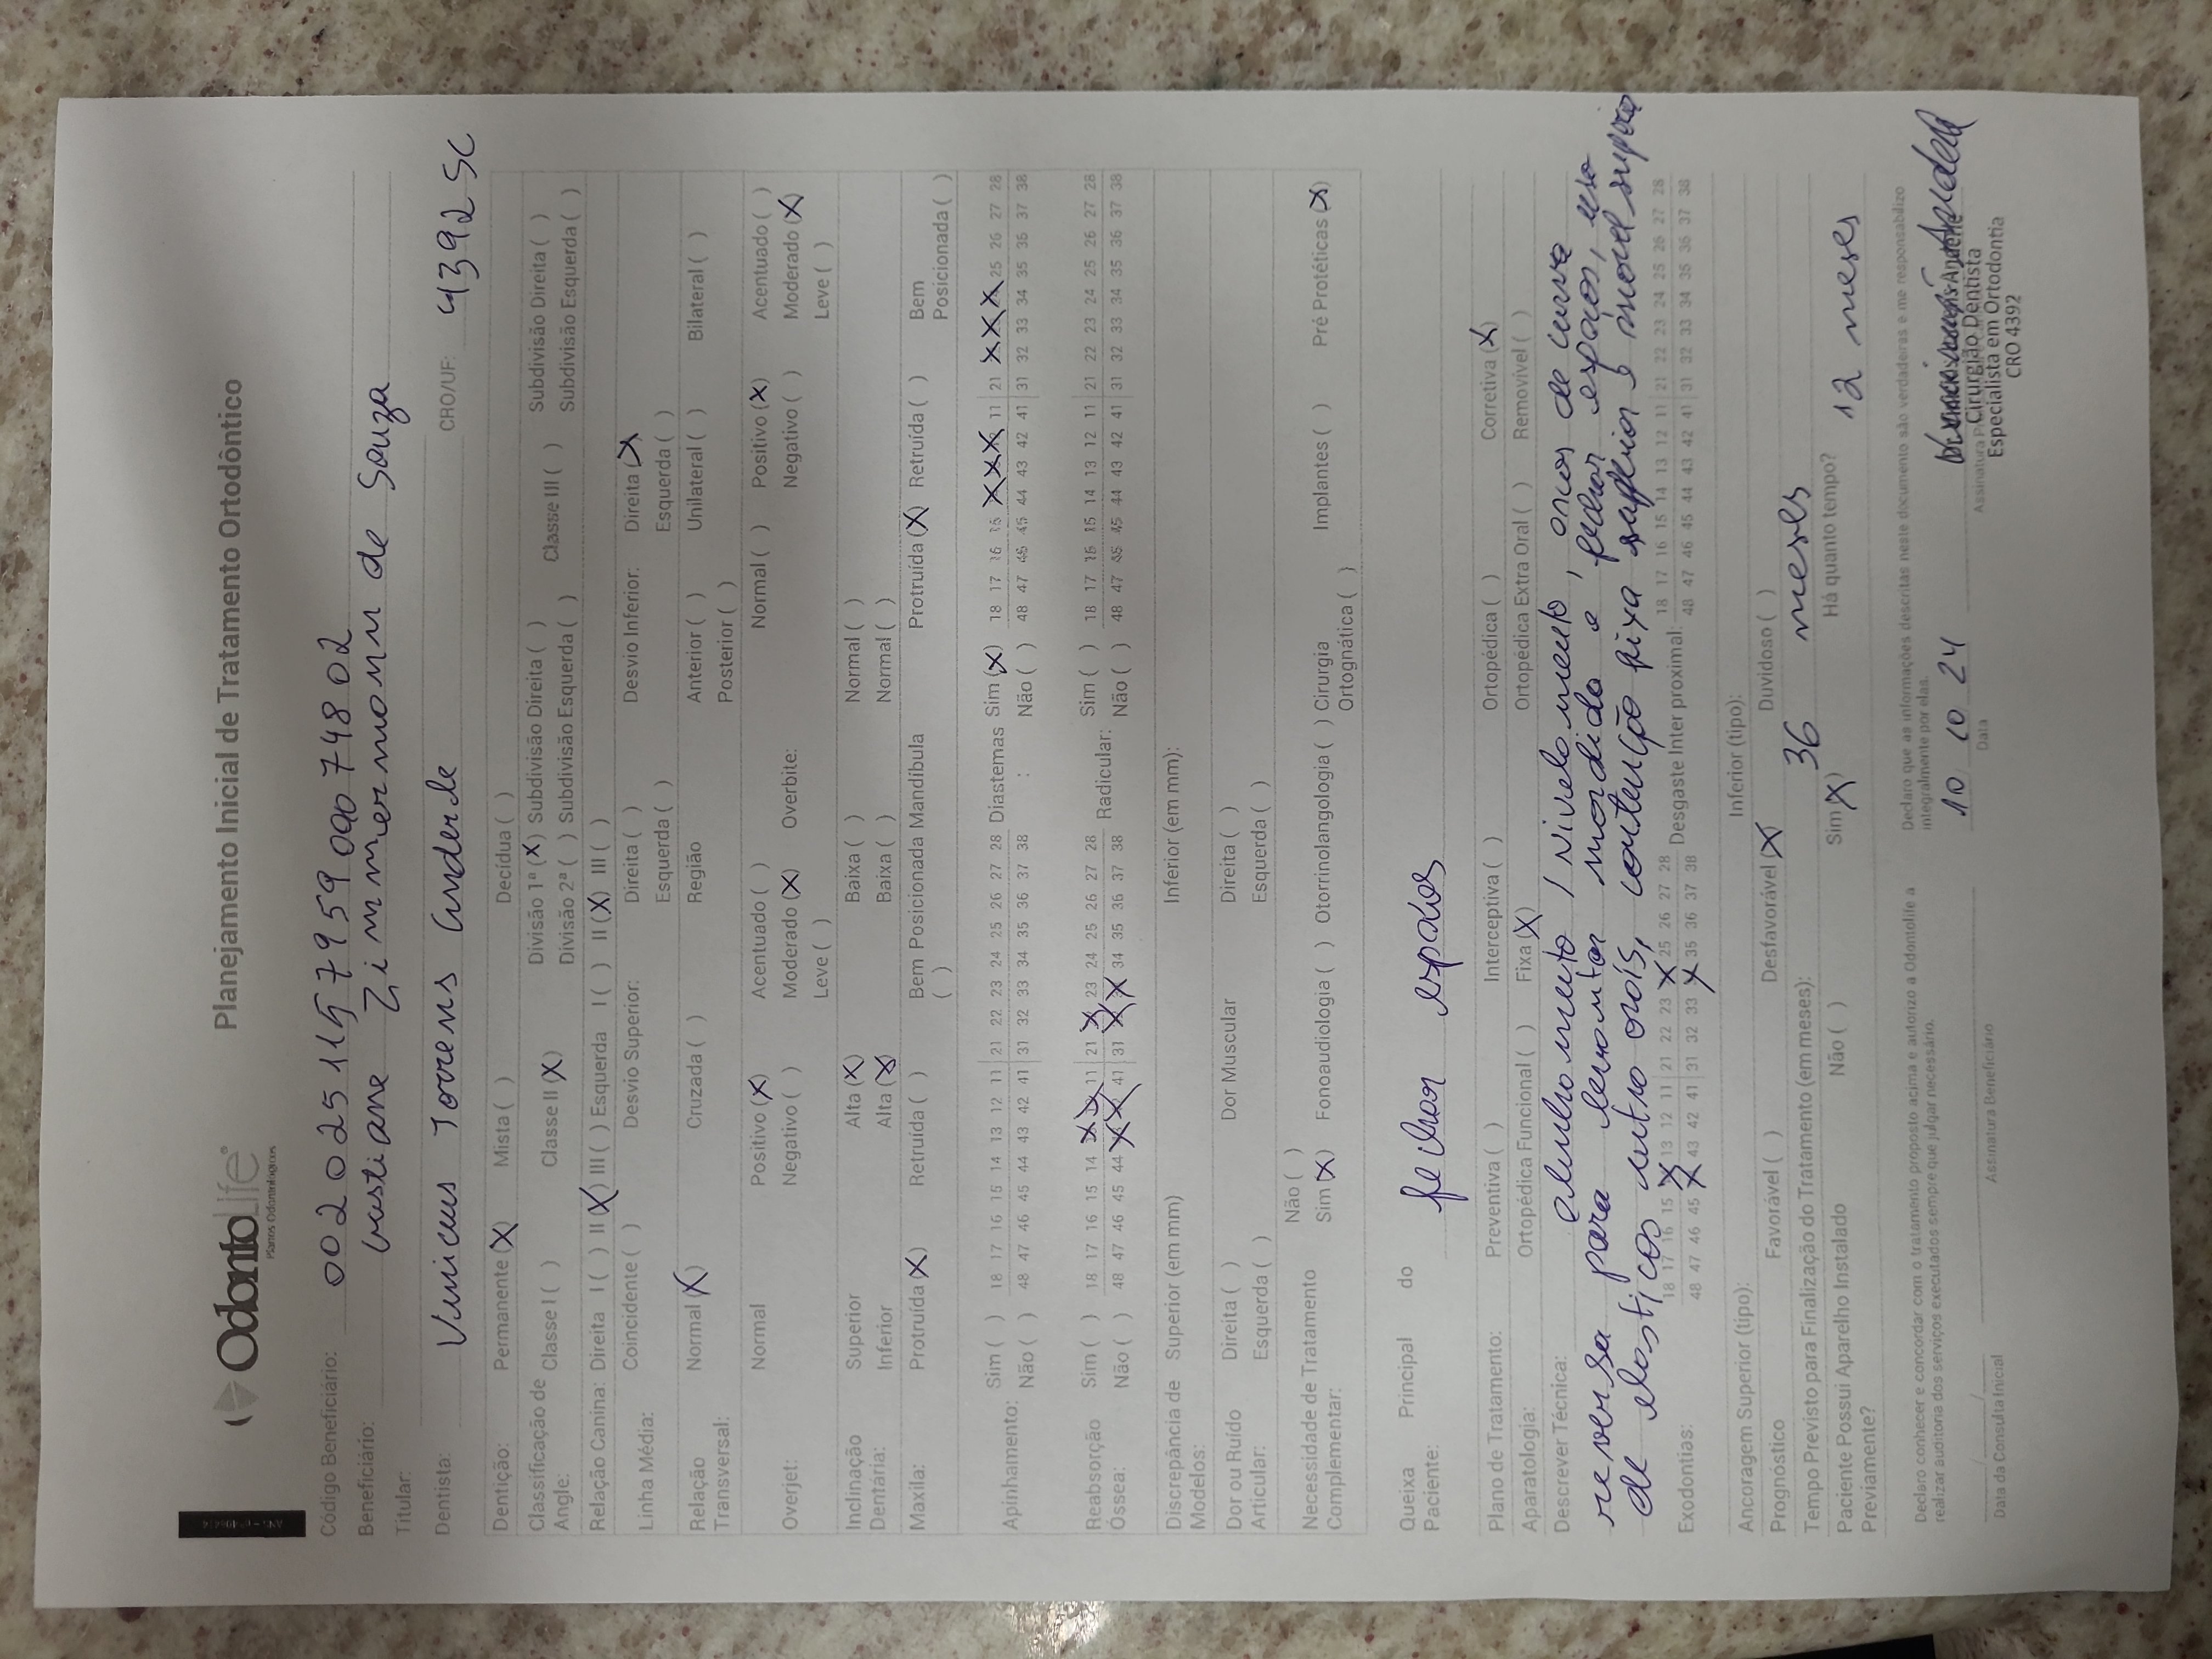 OdontoLife®
Planos Odontológicos
Planejamento Inicial de Tratamento Ortodôntico
Código Beneficiário: 00202511579590907 48 02
Beneficiário: Zimmermann de Souza
Titular:
Dentista: Vinicius Torrens Anderle CRO/UF: 4392 SC
Dentição: Permanente (X) Mista ( ) Decídua ( )
Classificação de Angle: Classe I ( ) Classe II (X) Divisão 1ª (X) Subdivisão Direita ( ) Classe III ( ) Subdivisão Direita ( )
Divisão 2ª ( ) Subdivisão Esquerda ( ) Subdivisão Esquerda ( )
Relação Canina: Direita I ( ) II (X) III ( ) Esquerda I ( ) II (X) III ( )
Linha Média: Coincidente ( ) Desvio Superior: Direita ( ) Desvio Inferior: Direita (X)
Esquerda ( ) Esquerda ( )
Relação Transversal: Normal (X) Cruzada ( ) Região Anterior ( ) Unilateral ( ) Bilateral ( )
Posterior ( )
Overjet: Normal Positivo (X) Acentuado ( ) Overbite: Normal ( ) Positivo (X) Acentuado ( )
Negativo ( ) Moderado (X) Negativo ( ) Moderado (X)
Leve ( ) Leve ( )
Inclinação Dentária: Superior Alta (X) Baixa ( ) Normal ( )
Inferior Alta (X) Baixa ( ) Normal ( )
Maxila: Protruída (X) Retruída ( ) Bem Posicionada ( ) Mandíbula Protruída (X) Retruída ( ) Bem Posicionada ( )
Apinhamento: Sim ( ) 18 17 16 15 14 13 12 11 21 22 23 24 25 26 27 28 Diastemas : Sim (X) 18 17 16 15 X X X 11 21 X X X 25 26 27 28
Não ( ) 48 47 46 45 44 43 42 41 31 32 33 34 35 36 37 38 Não ( ) 48 47 46 45 44 43 42 41 31 32 33 34 35 36 37 38
Reabsorção Óssea: Sim ( ) 18 17 16 15 14 X X 11 21 X 23 24 25 26 27 28 Radicular: Sim ( ) 18 17 16 15 14 13 12 11 21 22 23 24 25 26 27 28
Não ( ) 48 47 46 45 44 X X 41 31 X X 34 35 36 37 38 Não ( ) 48 47 46 45 44 43 42 41 31 32 33 34 35 36 37 38
Discrepância de Modelos: Superior (em mm) Inferior (em mm):
Dor ou Ruído Articular: Direita ( ) Dor Muscular Direita ( )
Esquerda ( ) Esquerda ( )
Necessidade de Tratamento Complementar: Não ( )
Sim (X) Fonoaudiologia ( ) Otorrinolangologia ( ) Cirurgia Ortognática ( ) Implantes ( ) Pré Protéticas (X)
Queixa Principal do Paciente: fechar espaços
Plano de Tratamento: Preventiva ( ) Interceptiva ( ) Ortopédica ( ) Corretiva (X)
Aparatologia: Ortopédica Funcional ( ) Fixa (X) Ortopédica Extra Oral ( ) Removível ( )
Descrever Técnica: alinhamento / nivelamento, arcos de curva
reversa para levantar mordida e fechar espaços, uso
de elasticos intra orais, contenção fixa inferior e movel superior
Exodontias: 18 17 16 15 X 13 12 11 21 22 23 X 25 26 27 28 Desgaste Inter proximal: 18 17 16 15 14 13 12 11 21 22 23 24 25 26 27 28
48 47 46 45 X 43 42 41 31 32 33 X 35 36 37 38 48 47 46 45 44 43 42 41 31 32 33 34 35 36 37 38
Ancoragem Superior (tipo): Inferior (tipo):
Prognóstico Favorável ( ) Desfavorável (X) Duvidoso ( )
Tempo Previsto para Finalização do Tratamento (em meses): 36 meses
Paciente Possui Aparelho Instalado Previamente? Não ( ) Sim (X) Há quanto tempo? 12 meses
Declaro conhecer e concordar com o tratamento proposto acima e autorizo a Odontolife a
realizar auditoria dos serviços executados sempre que julgar necessário.
Declaro que as informações descritas neste documento são verdadeiras e me responsabilizo
integralmente por elas.
10 10 24
Data da Consulta Inicial
Assinatura Beneficiário
Data
Cirurgião Dentista
Especialista em Ortodontia
CRO 4392